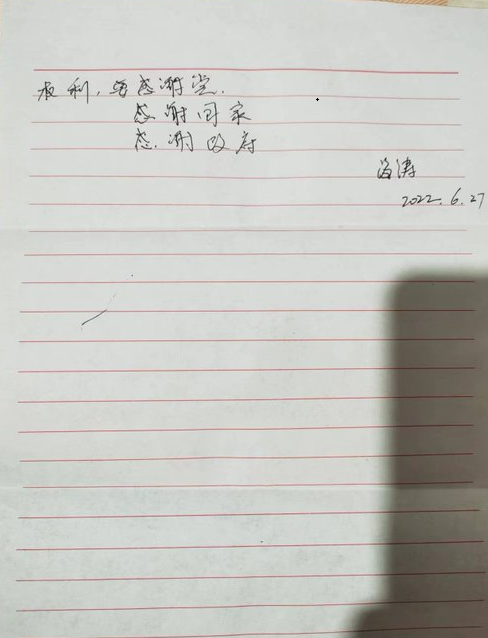 权利，要感谢党.
感谢国家
感谢政府
涛
2022.6.27